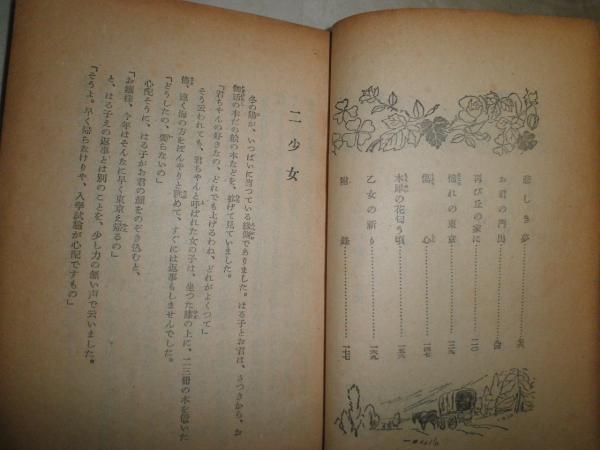 悲しき夢
お君の門出
再び丘の家に…………一一〇
憧れの東京…………一二九
傷心…………一四七
木犀の花匂う頃…………一五六
乙女の祈り…………一六九
附録
二少女
冬の陽が、いつぱいに当つている縁側でありました。はる子とお君は、さつきから、お
伽話の本だの絵の本などを、拡げて見ていました。
「君ちゃんの好きなの、どれでも上げるわね、どれがよくつて」
そう云われても、君ちゃんと呼ばれた女の子は、坐つた膝の上に、二三冊の本を置いた
儘、遠く海の方をぼんやりと眺めて、すぐには返事もしませんでした。
「どうしたの、要らないの」
心配そうに、はる子がお君の顔をのぞき込むと、
「お嬢様、今年はそんなに早く東京え帰るの」
と、はる子えの返事とは別のことを、少し力の無い声で云いました。
「そうよ。早く帰らなけりや、入学試験が心配ですもの」